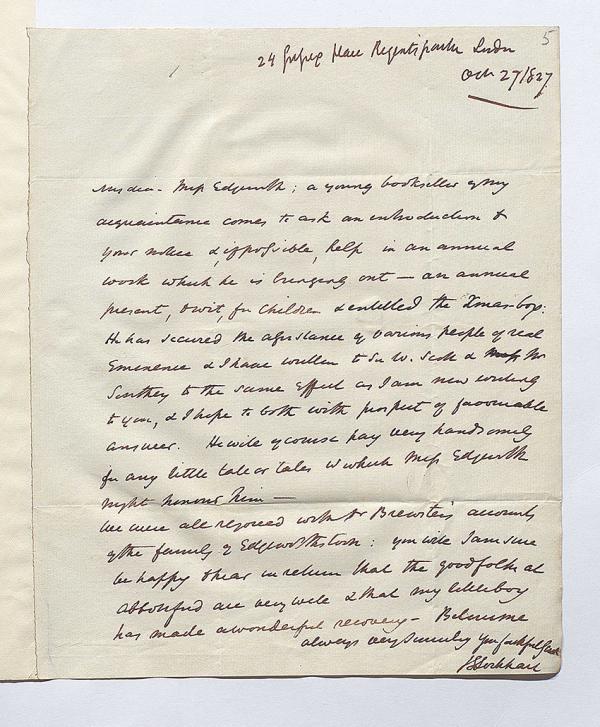 24 Sussex Place Regents park London
5
Oct 27 1827
My dear Miss Edgeworth; a young bookseller of my
acquaintance comes to ask an introduction to
your notice & if possible, help in an annual
work which he is bringing out — an annual
present, to wit, for Children & entitled the Xmas-box:
He has secured the assistance of various people of real
Eminence & I have written to Sir W. Scott & Miss Mr
Southey to the same Effect as I am now writing
to you, & I hope to both with prospect of favourable
answer. He will of course pay very handsomely
for any little tale or tales w which Miss Edgeworth
might honour him —
We were all rejoiced with Dr Brewster's accounts
of the family of Edgeworthstown: you will I am sure
be happy to hear in return that the good folks at
Abbotsford are very well & that my little boy
has made a wonderful recovery — Believe me
always very sincerely your faithful
JGLockhart